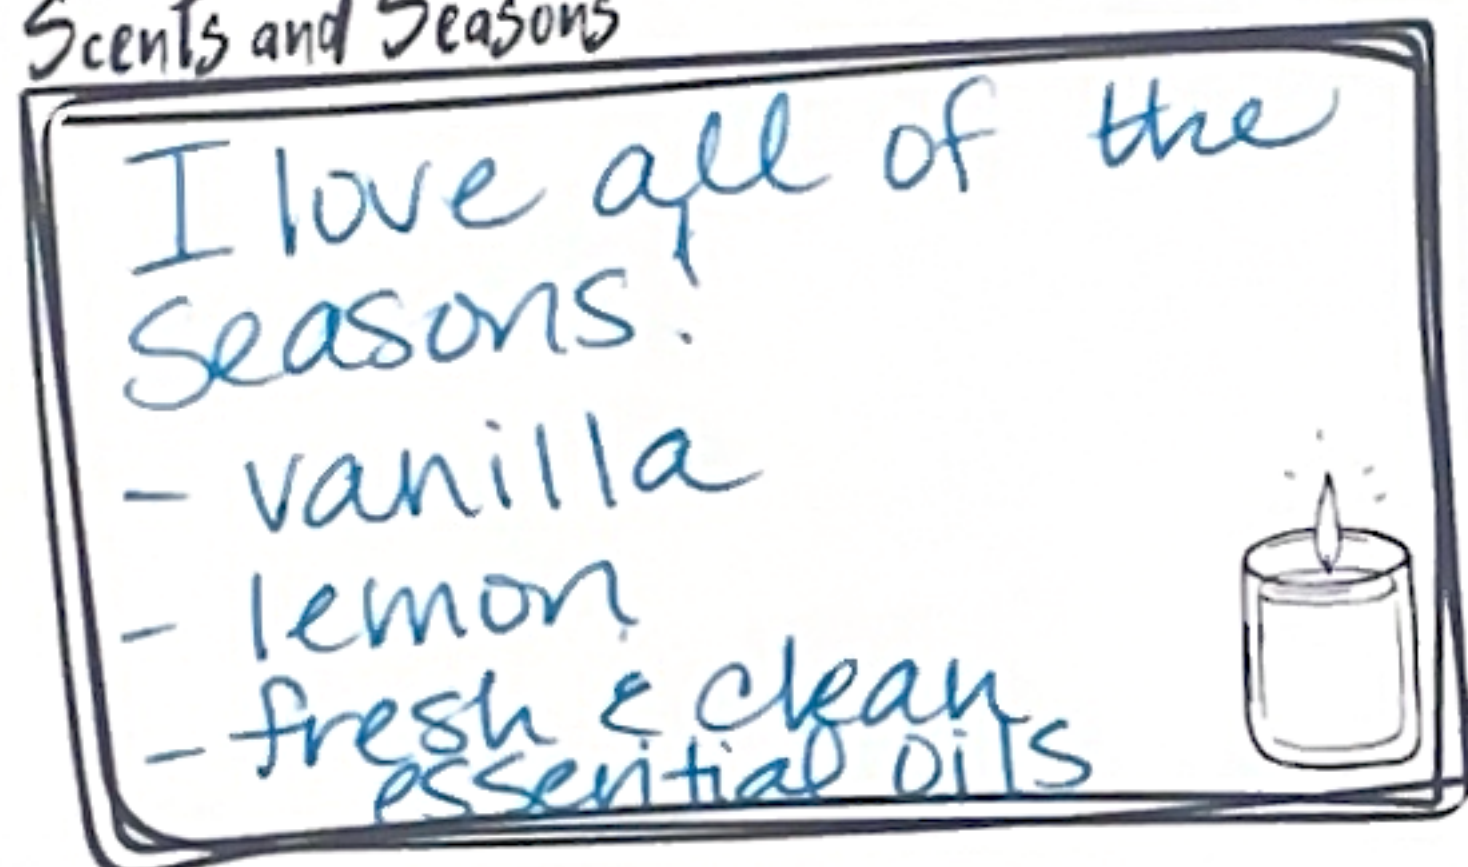 Scents and Seasons
I love all of the
seasons!
- vanilla
- lemon
- fresh & clean
essential oils